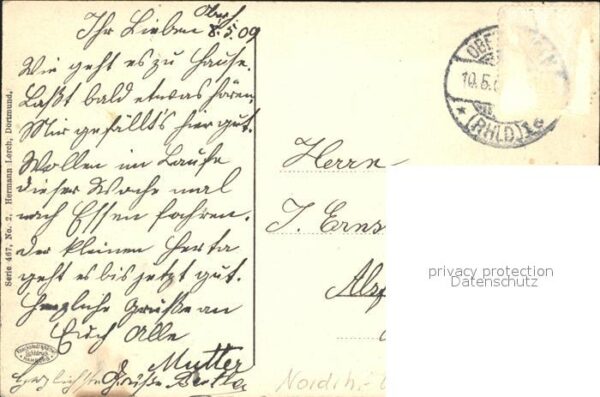 Ihr Lieben 8./5. 09
Wie geht es zu Hause.
Laßt bald etwas hören.
Mir gefällt's hier gut.
Wollen im Laufe
dieser Woche mal
nach Essen fahren.
Der kleinen Herta
geht es bis jetzt gut.
Herzliche Grüße an
Euch Alle
Mutter
Herzlichste Grüße Bertha
Serie 467, No. 2. Hermann Lorch, Dortmund.
OBE
10.5.
* (RHLD) 1a
Herrn
J. Erns
privacy protection
Datenschutz